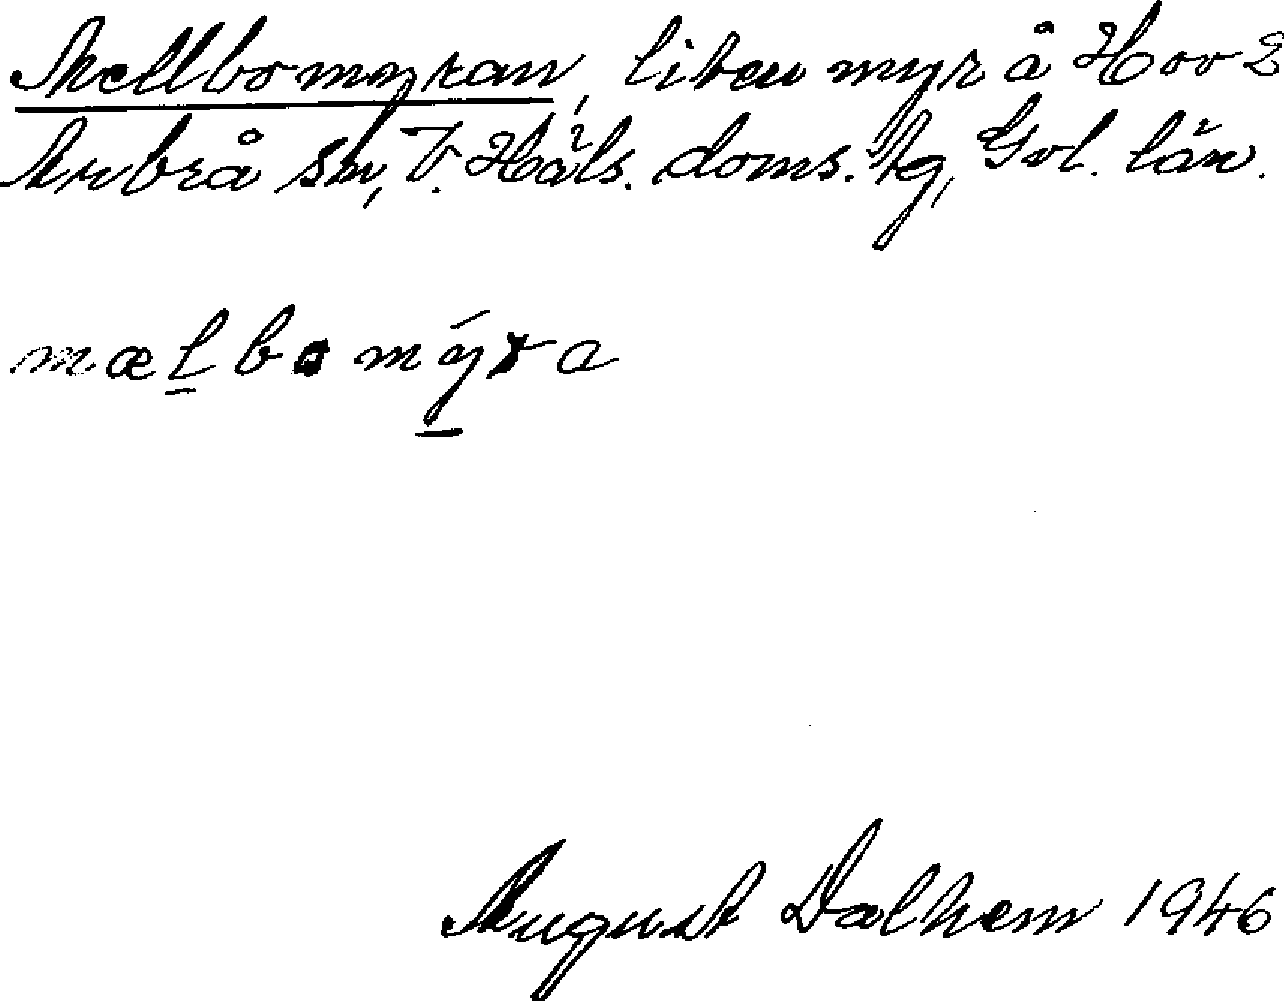 Mellbomyran, liten myr å Hov 2
Arbrå sn, V. Häls. doms. hg, Gvl. län.
mælbomýra
August Dalhem 1946